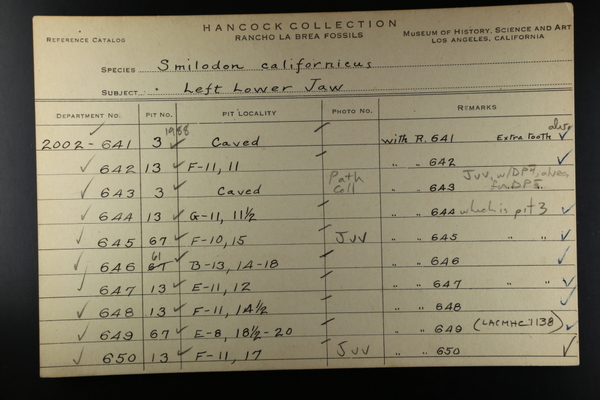 HANCOCK COLLECTION
REFERENCE CATALOG RANCHO LA BREA FOSSILS MUSEUM OF HISTORY, SCIENCE AND ART
LOS ANGELES, CALIFORNIA
SPECIES Smilodon californicus
SUBJECT Left Lower Jaw
DEPARTMENT NO. PIT NO. PIT LOCALITY PHOTO NO. REMARKS
1988 also
2002-641 3 Caved with R. 641 Extra tooth ✓
✓ 642 13 ✓ F-11, 11 " " 642 ✓
✓ 643 3 Caved Path Coll " " 643 Juv, w/DP4, alveo. for DP3
✓ 644 13 ✓ G-11, 11½ " " 644 which is pit 3 ✓
✓ 645 67 ✓ F-10, 15 Juv " " 645 " " ✓
61
✓ 646 67 B-13, 14-18 " " 646 ✓
✓ 647 13 ✓ E-11, 12 " " 647 " " ✓
✓ 648 13 ✓ F-11, 14½ " " 648 ✓
✓ 649 67 ✓ E-8, 18½-20 " " 649 (LACMHC 7138) ✓
✓ 650 13 ✓ F-11, 17 Juv " " 650 ✓